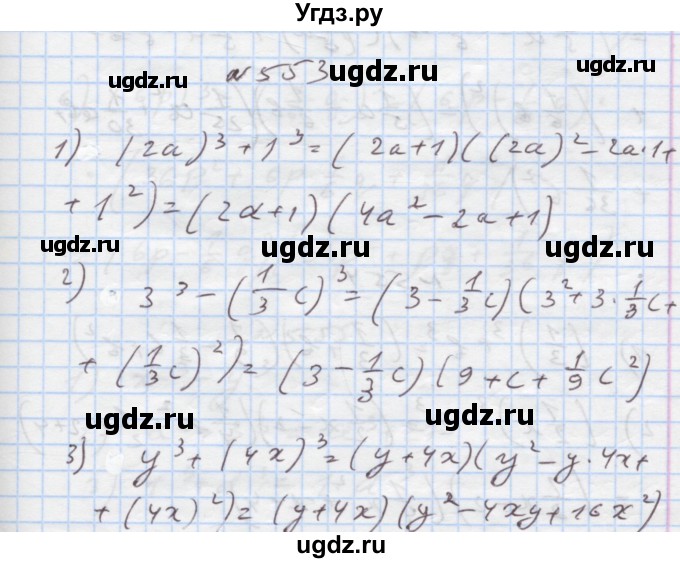 Угдз.ру
ugdz.ru № 553 ugdz.ru
ugdz.ru ugdz.ru
1) (2a)³ + 1³ = (2a+1)((2a)² – 2a·1 +
+ 1²) = (2a+1)(4a² – 2a + 1)
ugdz.ru ugdz.ru ugdz.ru
2) 3³ – (1/3 c)³ = (3 – 1/3 c)(3² + 3 · 1/3 c +
+ (1/3 c)²) = (3 – 1/3 c)(9 + c + 1/9 c²)
ugdz.ru ugdz.ru
3) y³ + (4x)³ = (y + 4x)(y² – y · 4x +
+ (4x)²) = (y+4x)(y² – 4xy + 16x²)
ugdz.ru